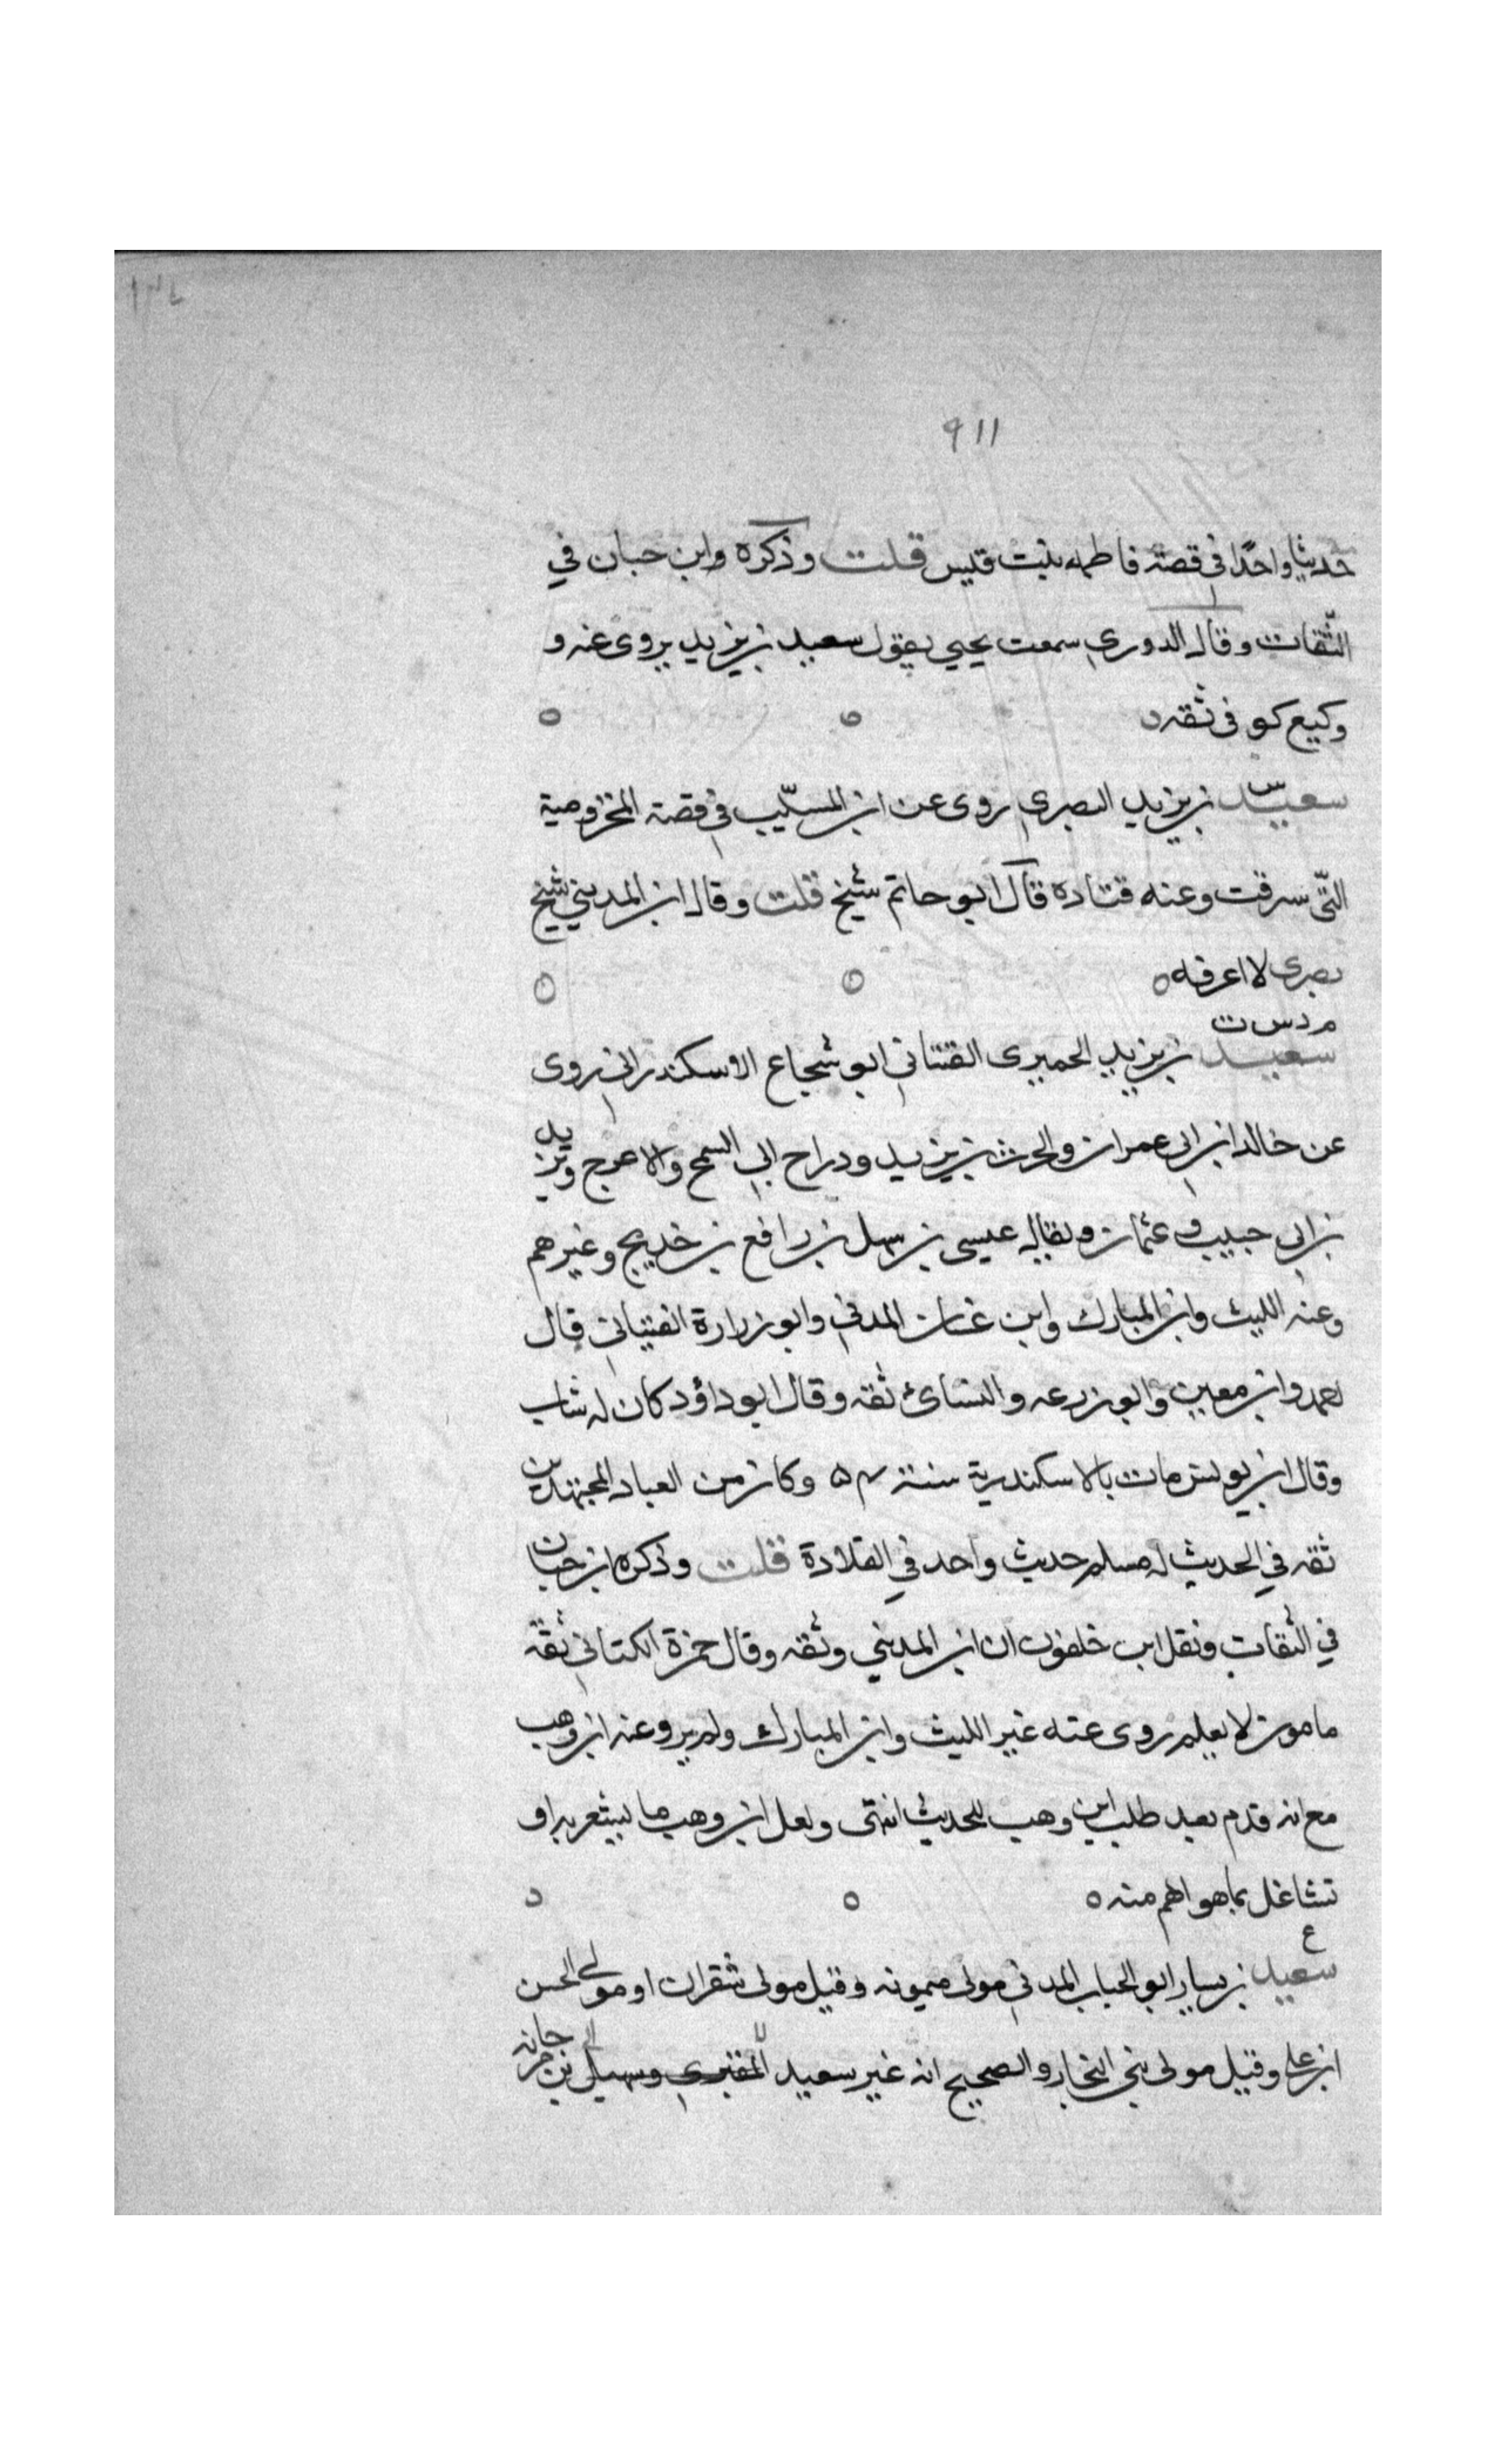 ١٣٤
٩١١
حديثا واحدًا في قصة فاطمه بنت قيس قلت وذكره وابن حبان في
الثّقات وقال الدوري سمعت يحيى يقول سعيد بن يزيد يروى عنه و
وكيع كوفى ثقه
س
سعيد بن يزيد البصرى روى عن ابن المسيّب في قصة المخزومية
التّى سرقت وعنه قتاده قال ابو حاتم شيخ قلت وقال ابن المديني شيخ
بصرى لا اعرفه
م د س ت
سعيد بن يزيد الحميرى القتبانى ابو شجاع الاسكندرانى روى
عن خالد ابن ابى عمران والحرث بن يزيد ودراج ابى السمح والاعرج ويزيد
بن ابى حبيب و عثمان ويقال عيسى بن سهل بن رافع بن خديج وغيرهم
وعنه الليث وابن المبارك وابن غسان المدنى وابو زرارة القتبانى قال
احمد وابن معين وابو زرعه والنسائ ثقه وقال ابو داؤد كان له شاب
وقال ابن يونس مات بالاسكندرية سنة ٥٤ وكان من العباد المجتهدين
ثقه في الحديث له مسلم حديث واحد في القلادة قلت وذكره ابن حبان
في الثقات ونقل ابن خلفون ان ابن المديني وثقه وقال حمزة الكتانى ثقة
مامون لا يعلم روى عنه غير الليث وابن المبارك ولم يرو عنه ابن وهب
مع انه قدم بعد طلب ابن وهب للحديث انتهى ولعل ابن وهب ما يشعر به او
تشاغل بما هو اهم منه
ع
سعيد بن يسار ابو الحباب المدنى مولى ميمونه وقيل مولى شقران او مولى الحسن
ابن على وقيل مولى بنى النجار والصحيح انه غير سعيد المقبرى وسهيل بن مرجانه